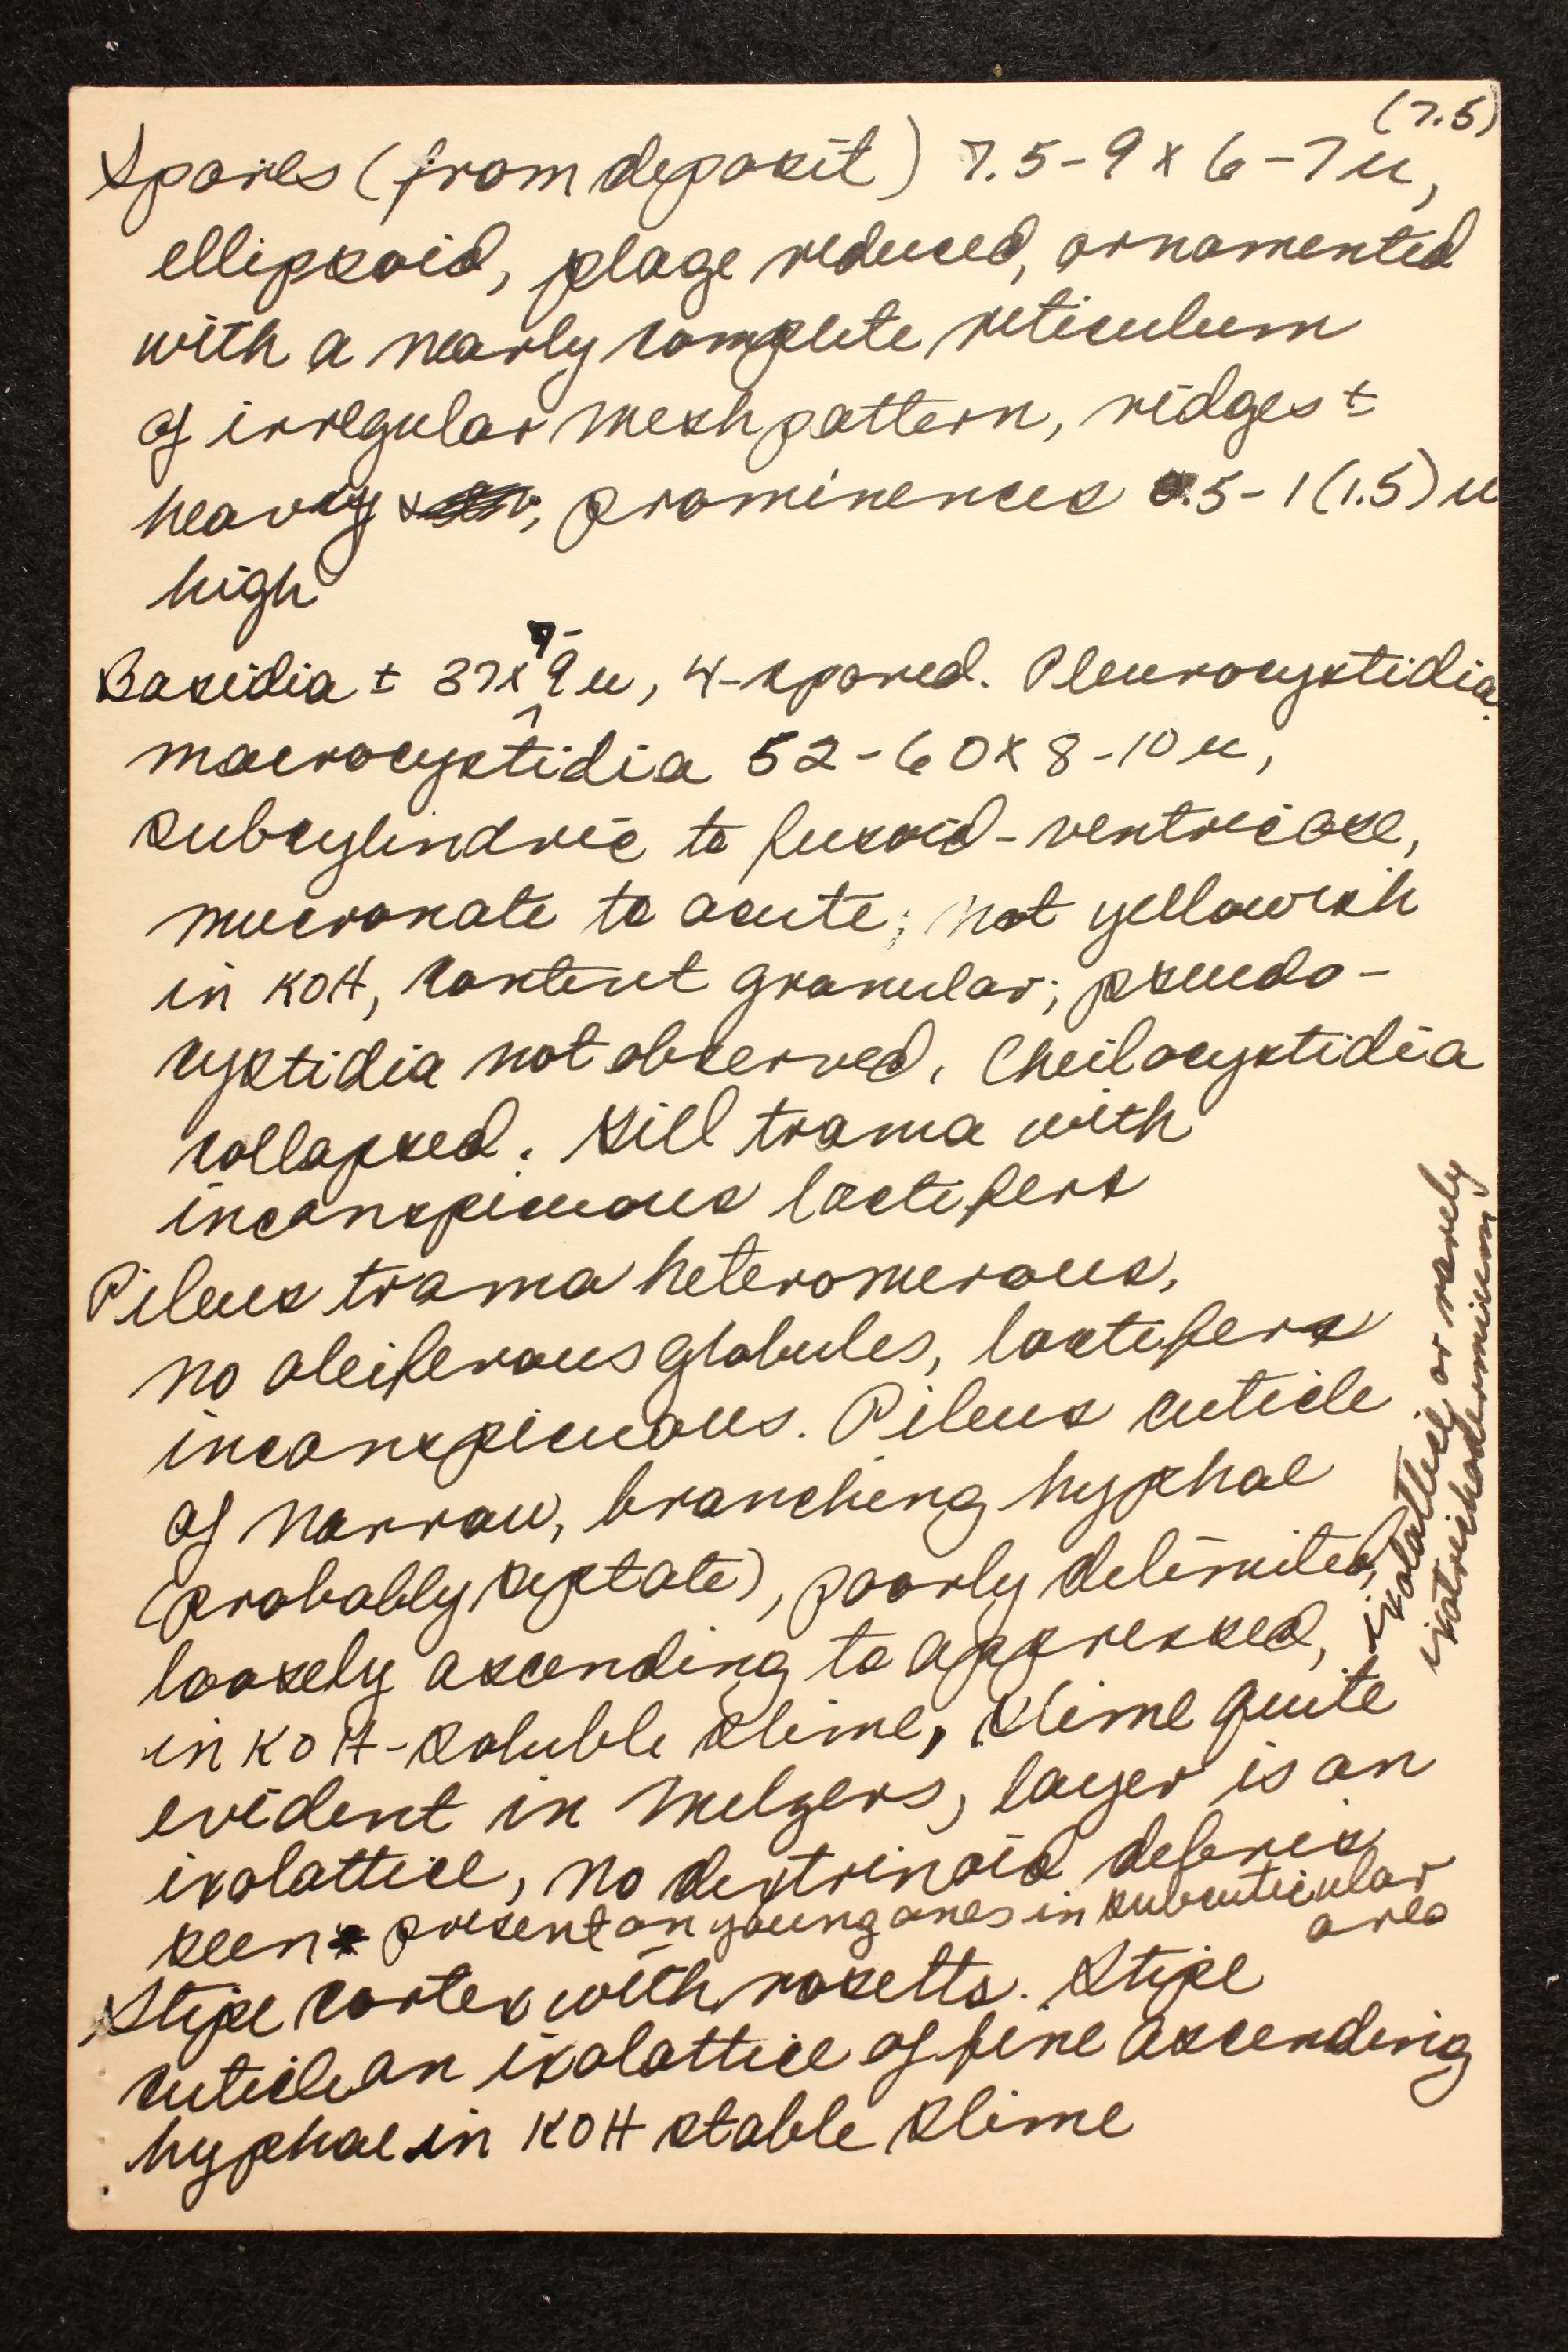 (7.5)
Spores (from deposit) 7.5-9 x 6-7 u,
ellipsoid, plage reduced, ornamented
with a nearly complete reticulum
of irregular mesh pattern, ridges ±
heavy, prominences 0.5-1 (1.5) u
high
7-
Basidia ± 37 x 9 u, 4-spored. Pleurocystidia:
macrocystidia 52-60 x 8-10 u,
subcylindric to fusoid-ventricose,
mucronate to acute; not yellowish
in KOH, content granular; pseudo-
cystidia not observed. Cheilocystidia
collapsed. Gill trama with
inconspicuous lactifers
Pileus trama heteromerous,
no oleiferous globules, lactifers
inconspicuous. Pileus cuticle
of narrow, branching hyphae
(probably septate), poorly delimited,
loosely ascending to appressed,
in KOH-soluble slime, slime quite
evident in Melzers, layer is an
ixolattice, no dextrinoid debris
seen present on young ones in subcuticular
area
Stipe cortex with rosetts. Stipe
cuticle an ixolattice of fine ascending
hyphae in KOH stable slime
ixolattice or rarely
ixotrichodermium